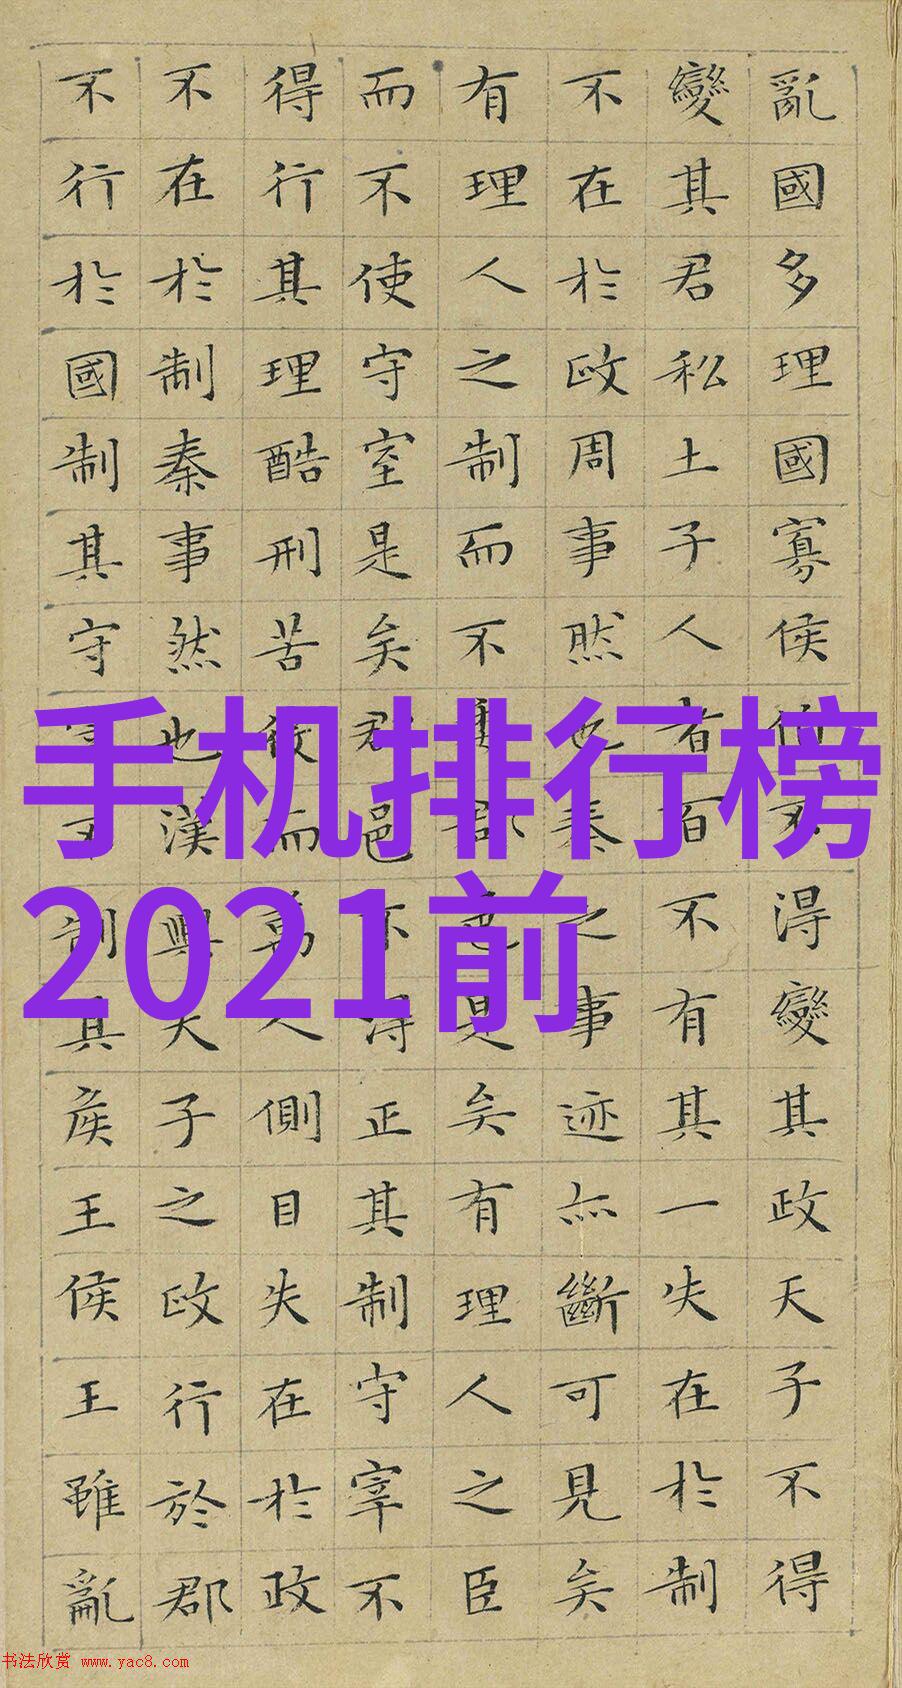 亂國多理國寡侯不得變其政天子不得
變其君私土子人者百不有其一失在於制
不在於政周事然也秦之事迹亦斷可見矣
有理人之制而不郡邑是矣有理人之臣
而不使守宰是矣郡邑不得正其制守宰不
得行其理酷刑苦役而萬人側目失在於政
不在於制秦事然也漢興天子之政行於郡
不行於國制其守不制其侯王侯王雖亂
手机排行榜
2021前
书法欣赏 www.yac8.com